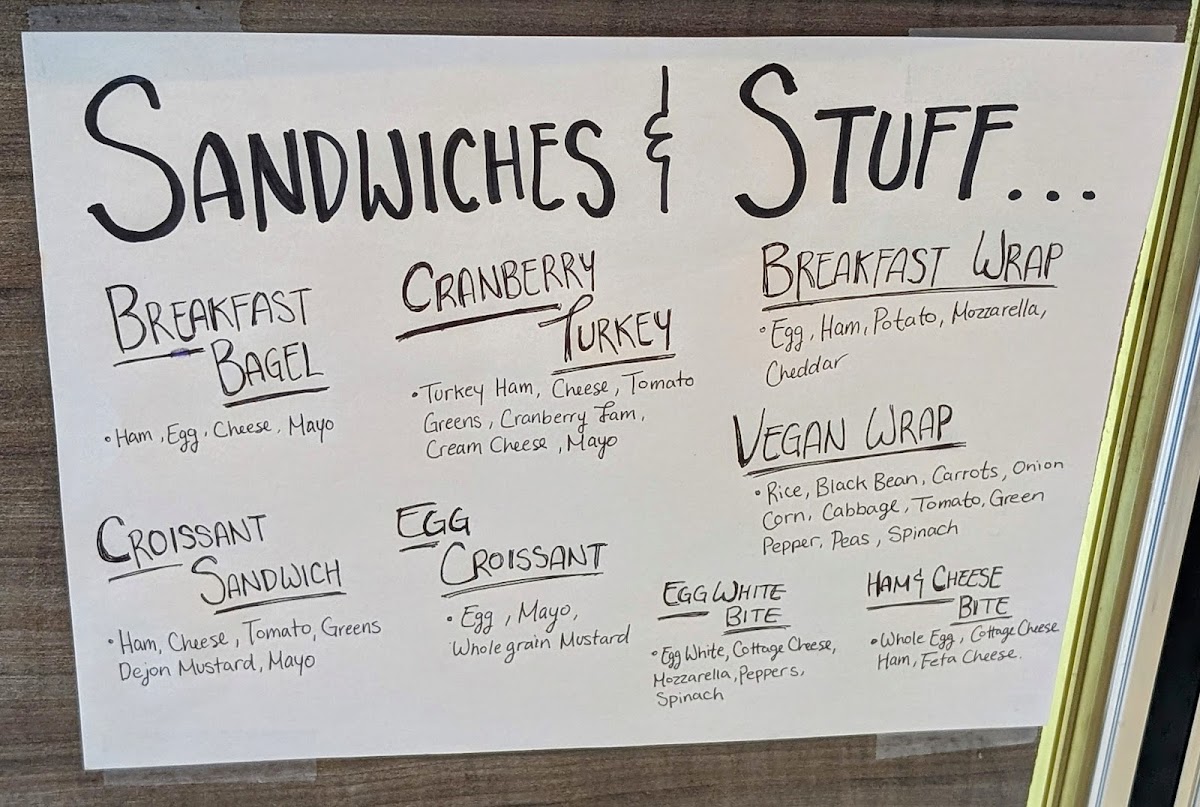 SANDWICHES & STUFF...
BREAKFAST
BAGEL
• Ham, Egg, Cheese, Mayo
CRANBERRY
TURKEY
• Turkey Ham, Cheese, Tomato
Greens, Cranberry Jam,
Cream Cheese, Mayo
BREAKFAST WRAP
• Egg, Ham, Potato, Mozzarella,
Cheddar
VEGAN WRAP
• Rice, Black Bean, Carrots, Onion
Corn, Cabbage, Tomato, Green
Pepper, Peas, Spinach
CROISSANT
SANDWICH
• Ham, Cheese, Tomato, Greens
Dejon Mustard, Mayo
EGG
CROISSANT
• Egg, Mayo,
Whole grain Mustard
EGG WHITE
BITE
• Egg White, Cottage Cheese,
Mozzarella, Peppers,
Spinach
HAM & CHEESE
BITE
• Whole Egg, Cottage Cheese
Ham, Feta Cheese.